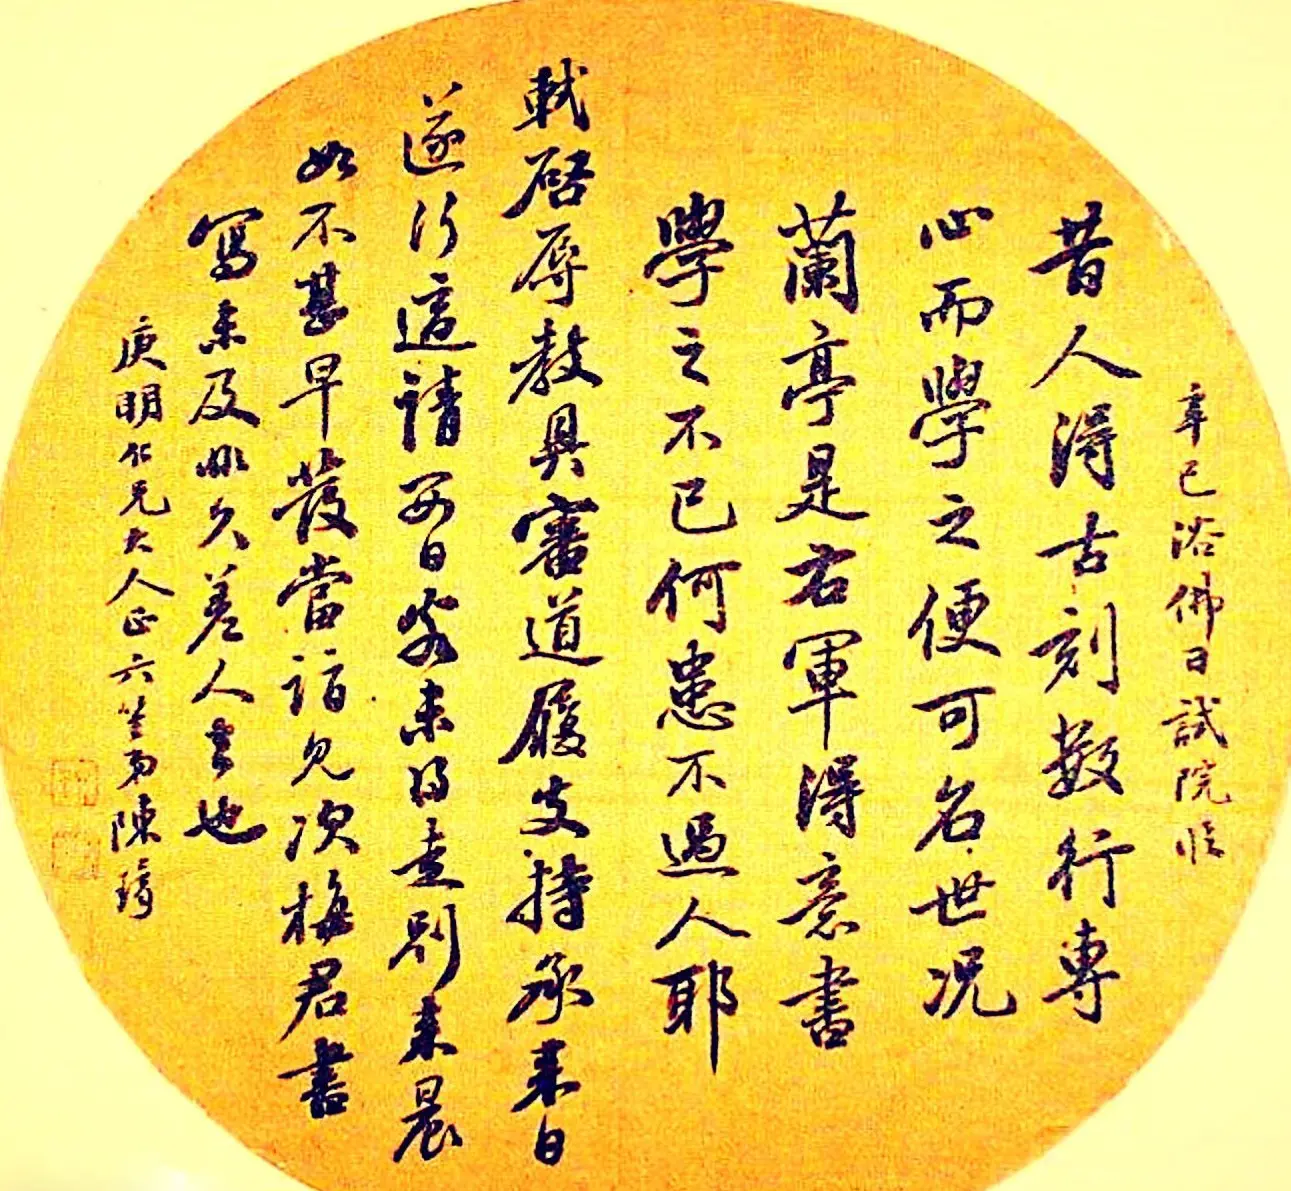 辛巳浴佛日試院臨
昔人得古刻數行專
心而學之便可名世況
蘭亭是右軍得意書
學之不已何患不過人耶
軾啓辱教具審道履支持承來日
遂行適請日客未得走別來晨
如不甚早發當詣見次梅君書
寫未及非久差人去也
庚明仁兄大人正六笙弟陳璚